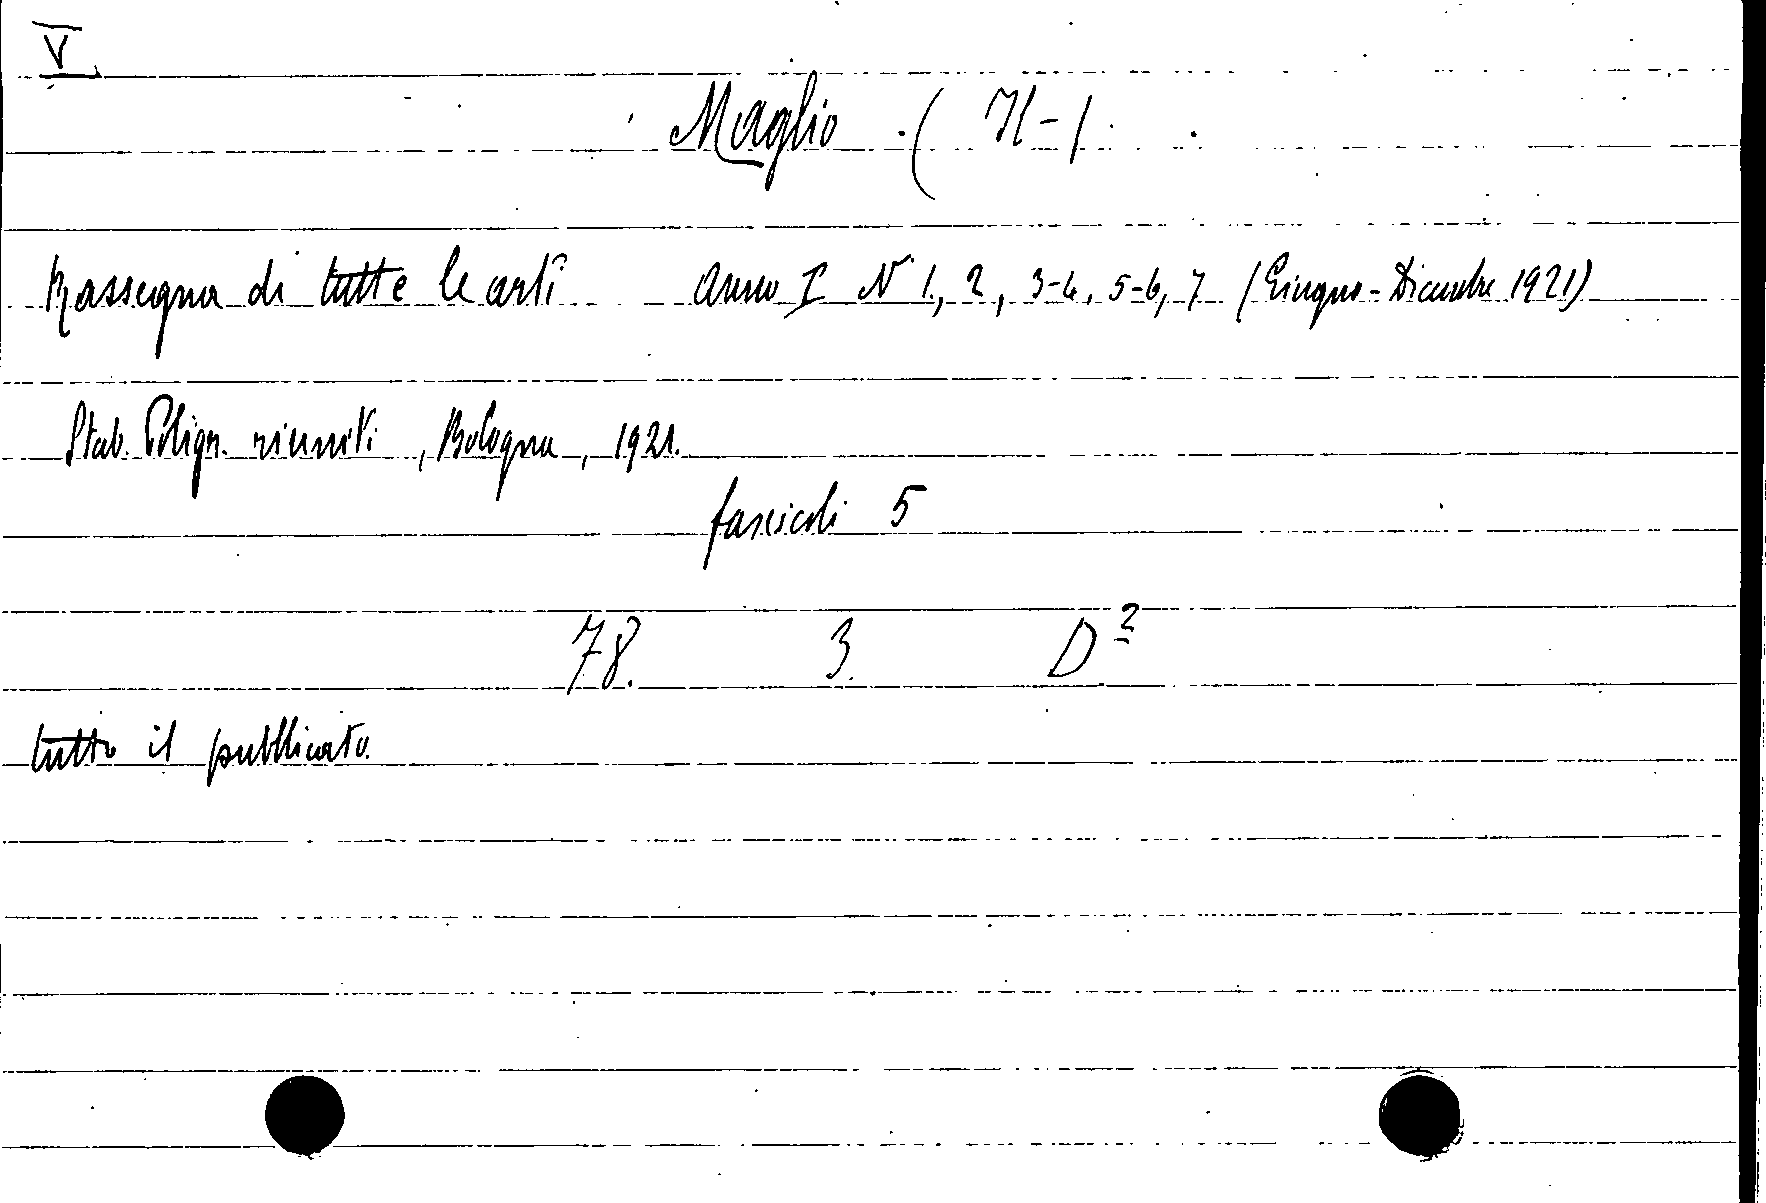 V
Maglio (Il-)
Rassegna di tutte le arti anno I N 1, 2, 3-4, 5-6, 7 (Giugno-Dicembre 1921)
Stab. Poligr. riuniti, Bologna, 1921.
fascicoli 5
78. 3. D²
tutto il pubblicato.